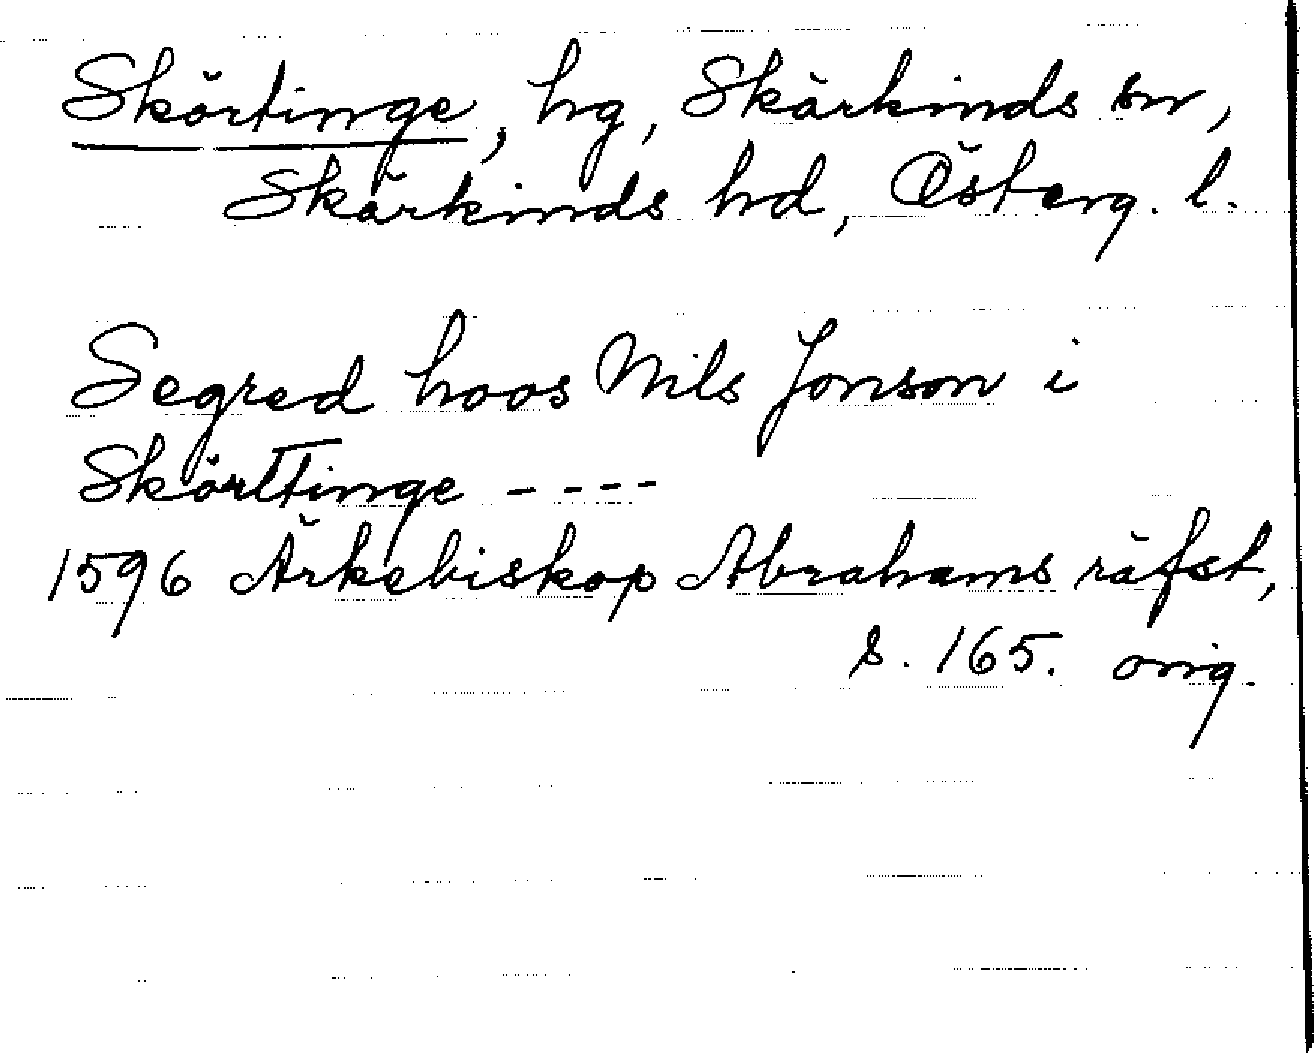 Skörtinge, hg, Skärkinds sn,
Skärkinds hd, Österg. l.
Segred hoos Nils Jonson i
Skörttinge - - - -
1596 Ärkebiskop Abrahams räfst,
s. 165. orig.